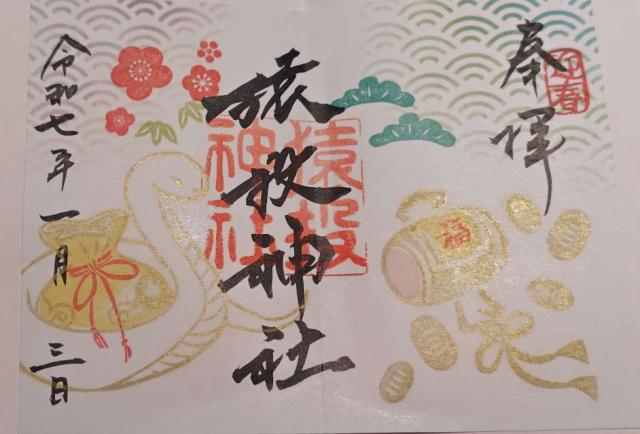 奉拝
迎春
福
猿投神社
猿投
神社
令和七年一月三日